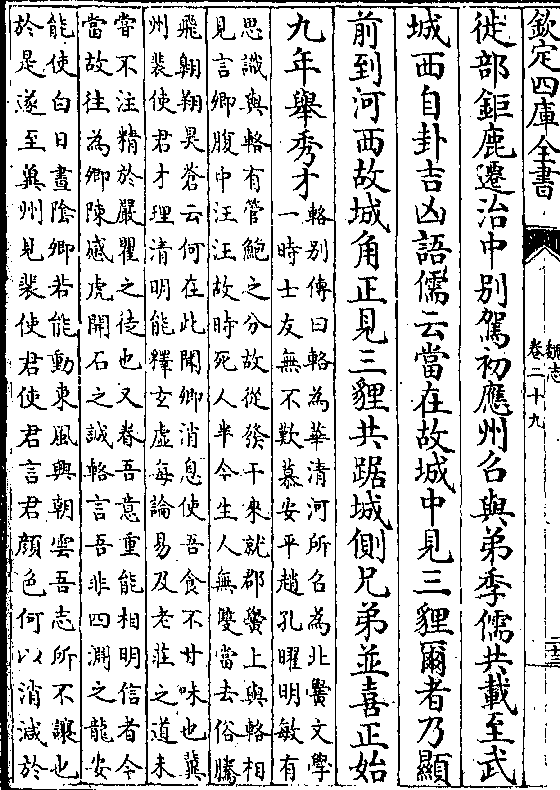 欽定四庫全書
魏志
卷二十九
徙部鉅鹿遷治中別駕初應州召與弟季儒共載至武
城西自卦吉凶語儒云當在故城中見三貍爾者乃顯
前到河西故城角正見三貍共踞城側兄弟並喜正始
九年舉秀才
輅別傳曰輅為華清河所召為北黌文學
一時士友無不歎慕安平趙孔曜明敏有
思識與輅有管鮑之分故從發干來就郡黌上與輅相
見言卿腹中汪汪故時死人半今生人無雙當去俗騰
飛翺翔昊蒼云何在此聞卿消息使吾食不甘味也冀
州裴使君才理清明能釋玄虛每論易及老莊之道未
甞不注精於嚴瞿之徒也又眷吾意重能相明信者今
當故往為卿陳感虎開石之誠輅言吾非四淵之龍安
能使白日晝陰卿若能動東風興朝雲吾志所不讓也
於是遂至冀州見裴使君使君言君顔色何以消減於